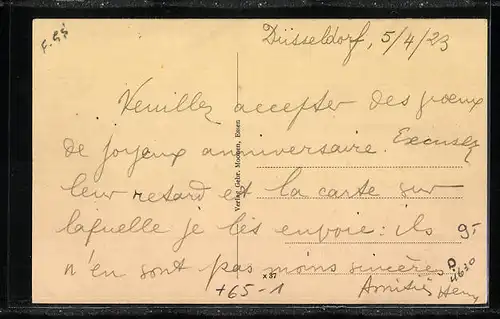 F. 35
Düsseldorf, 5/4/23
Veuillez accepter des voeux
de joyeux anniversaire. Excusez
leur retard et la carte sur
laquelle je les envoie : ils
n'en sont pas moins sincères
Amitiés Henry
Verlag Gebr. Moosen, Essen
x 37
+65-1
9-
D
4630